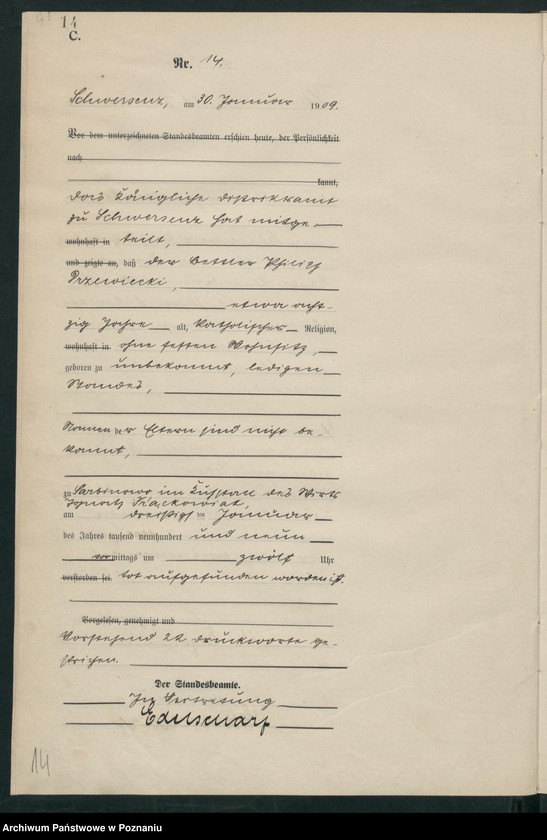 14
C.
Nr. 14.
Schwersenz, am 30. Januar 1909.
Vor dem unterzeichneten Standesbeamten erschien heute, der Persönlichkeit
nach
kannt,
das Königliche Distriktsamt
zu Schwersenz hat mitge-
wohnhaft in teilt,
und zeigte an, daß der Bettler Philipp
Przewiecki,
etwa acht-
zig Jahre alt, katholischer Religion,
wohnhaft in ohne festen Wohnsitz,
geboren zu unbekannt, ledigen
Standes,
Namen der Eltern sind nicht be-
kannt,
zu Sarbinowo im Kuhstall des Wirts
Ignatz
am dreißigsten Januar
des Jahres tausend neunhundert und neun
vormittags um zwölf Uhr
verstorben sei. tot aufgefunden worden ist.
Vorgelesen, genehmigt und
Vorstehend 22 Druckworte ge-
strichen.
Der Standesbeamte.
In Vertretung
Edelscharf
14
Archiwum Państwowe w Poznaniu